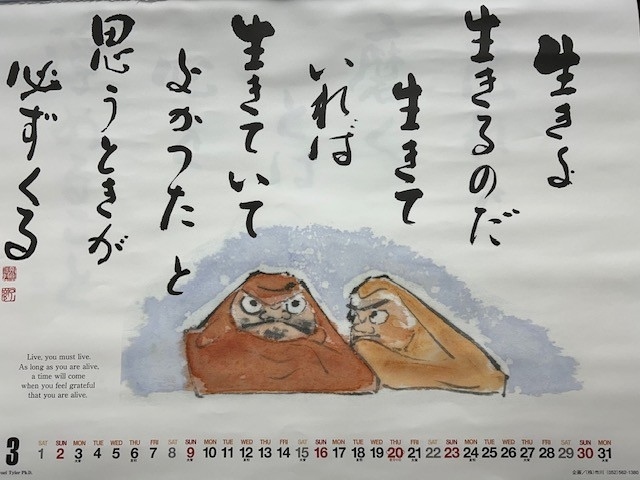 生きよ
生きるのだ
生きて
いれば
生きていて
よかったと
思うときが
必ずくる
Live, you must live.
As long as you are alive,
a time will come
when you feel grateful
that you are alive.
3
SAT SUN MON TUE WED THU FRI SAT SUN MON TUE WED THU FRI SAT SUN MON TUE WED THU FRI SAT SUN MON TUE WED THU FRI SAT SUN MON
1 2 3 4 5 6 7 8 9 10 11 12 13 14 15 16 17 18 19 20 21 22 23 24 25 26 27 28 29 30 31